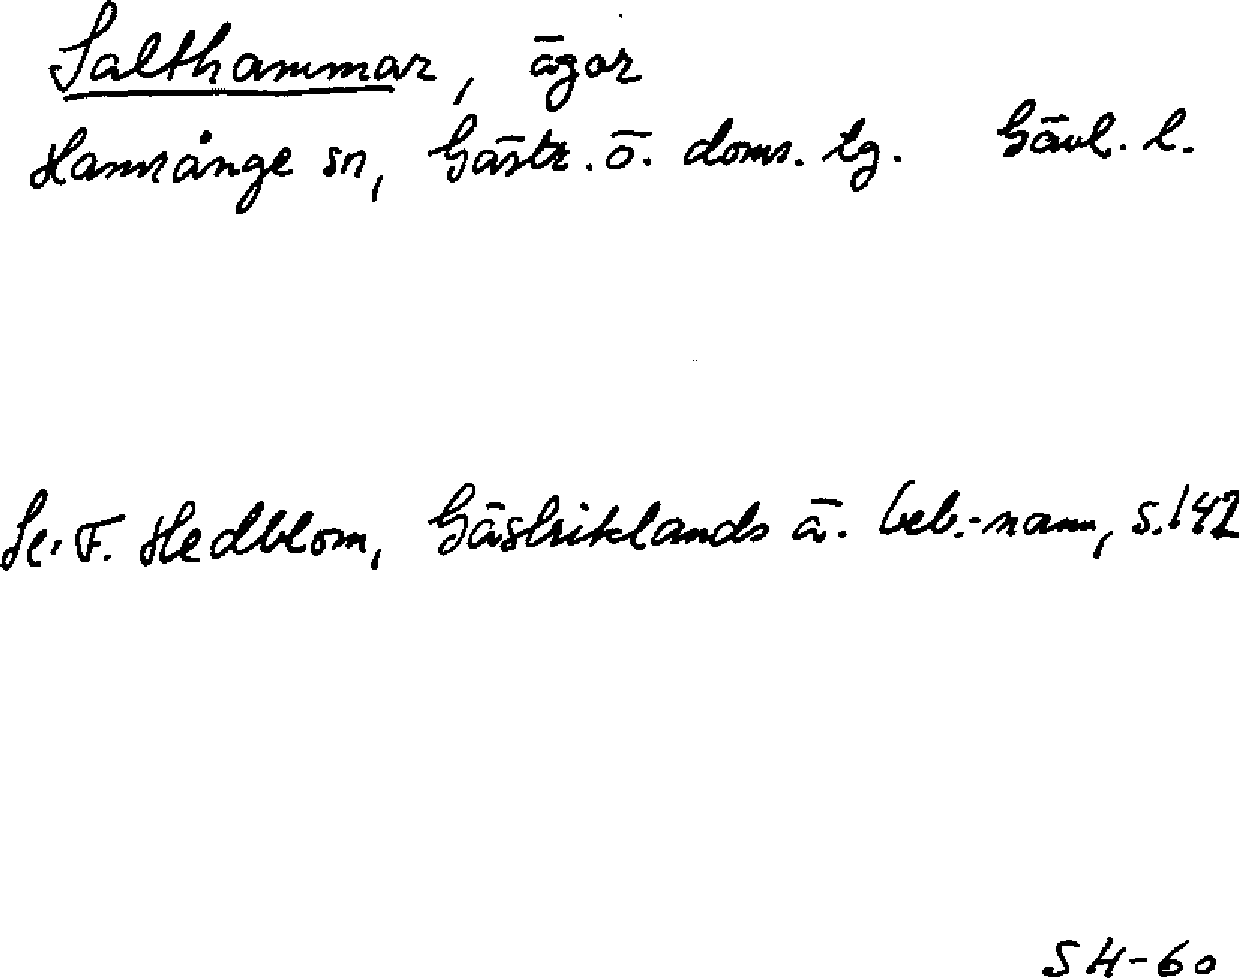 Salthammar, ägor
Hamrånge sn, Gästr. ö. doms. tg. Gävl. l.
Se. F. Hedblom, Gästriklands ä. beb.-namn, s. 142
SH-60